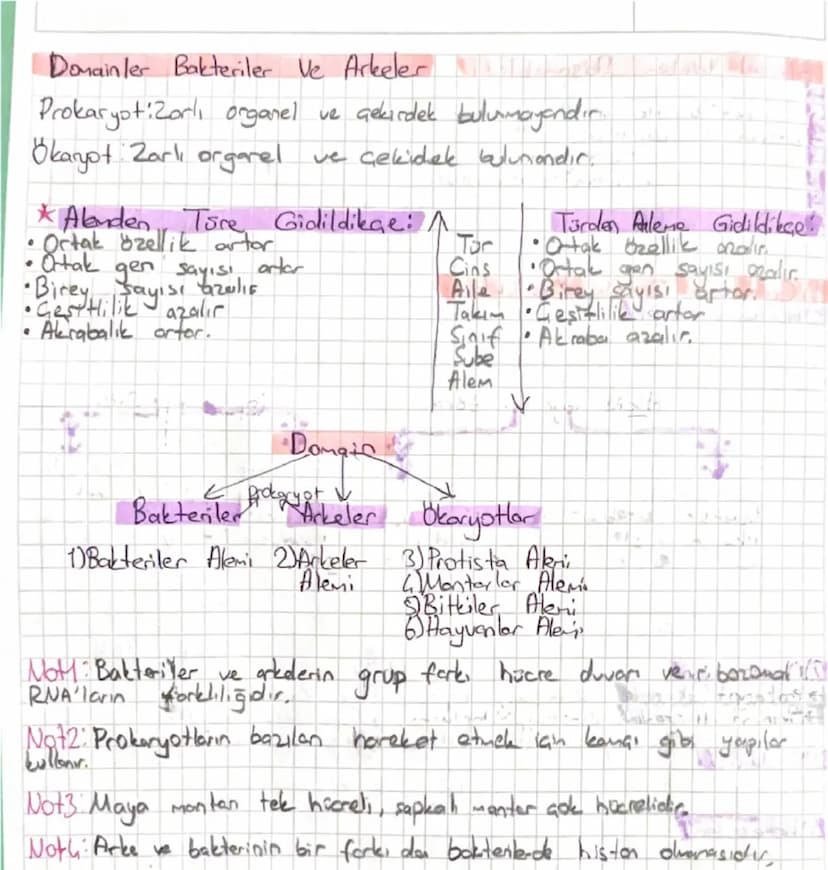 Domainler Bakteriler Ve Arkeler
Prokaryot: Zarlı organel ve çekirdek bulunmayandır.
Ökaryot: Zarlı organel ve çekidek bulunandır.
* Alemden Türe Gidildikçe:
• Ortak özellik artar
• Ortak gen sayısı artar
• Birey sayısı azalır
• Çeşitlilik azalır
• Akrabalık artar.
Tür
Cins
Aile
Takım
Sınıf
Şube
Alem
Türden Aleme Gidildikçe:
• Ortak özellik azalır.
• Ortak gen sayısı azalır.
• Birey sayısı artar.
• Çeşitlilik artar
• Akraba azalır.
Domain
Prokaryot
Bakteriler Arkeler Ökaryotlar
1) Bakteriler Alemi 2) Arkeler Alemi
3) Protista Alemi
4) Mantarlar Alemi
5) Bitkiler Alemi
6) Hayvanlar Alemi
Not1: Bakteriler ve arkelerin grup farkı hücre duvarı ve ribozomal
RNA'ların farklılığıdır.
Not2: Prokaryotların bazıları hareket etmek için kamçı gibi yapılar
kullanır.
Not3: Maya mantarı tek hücreli, şapkalı mantar çok hücrelidir.
Not4: Arke ve bakterinin bir farkı da bakterilerde histon olmamasıdır.